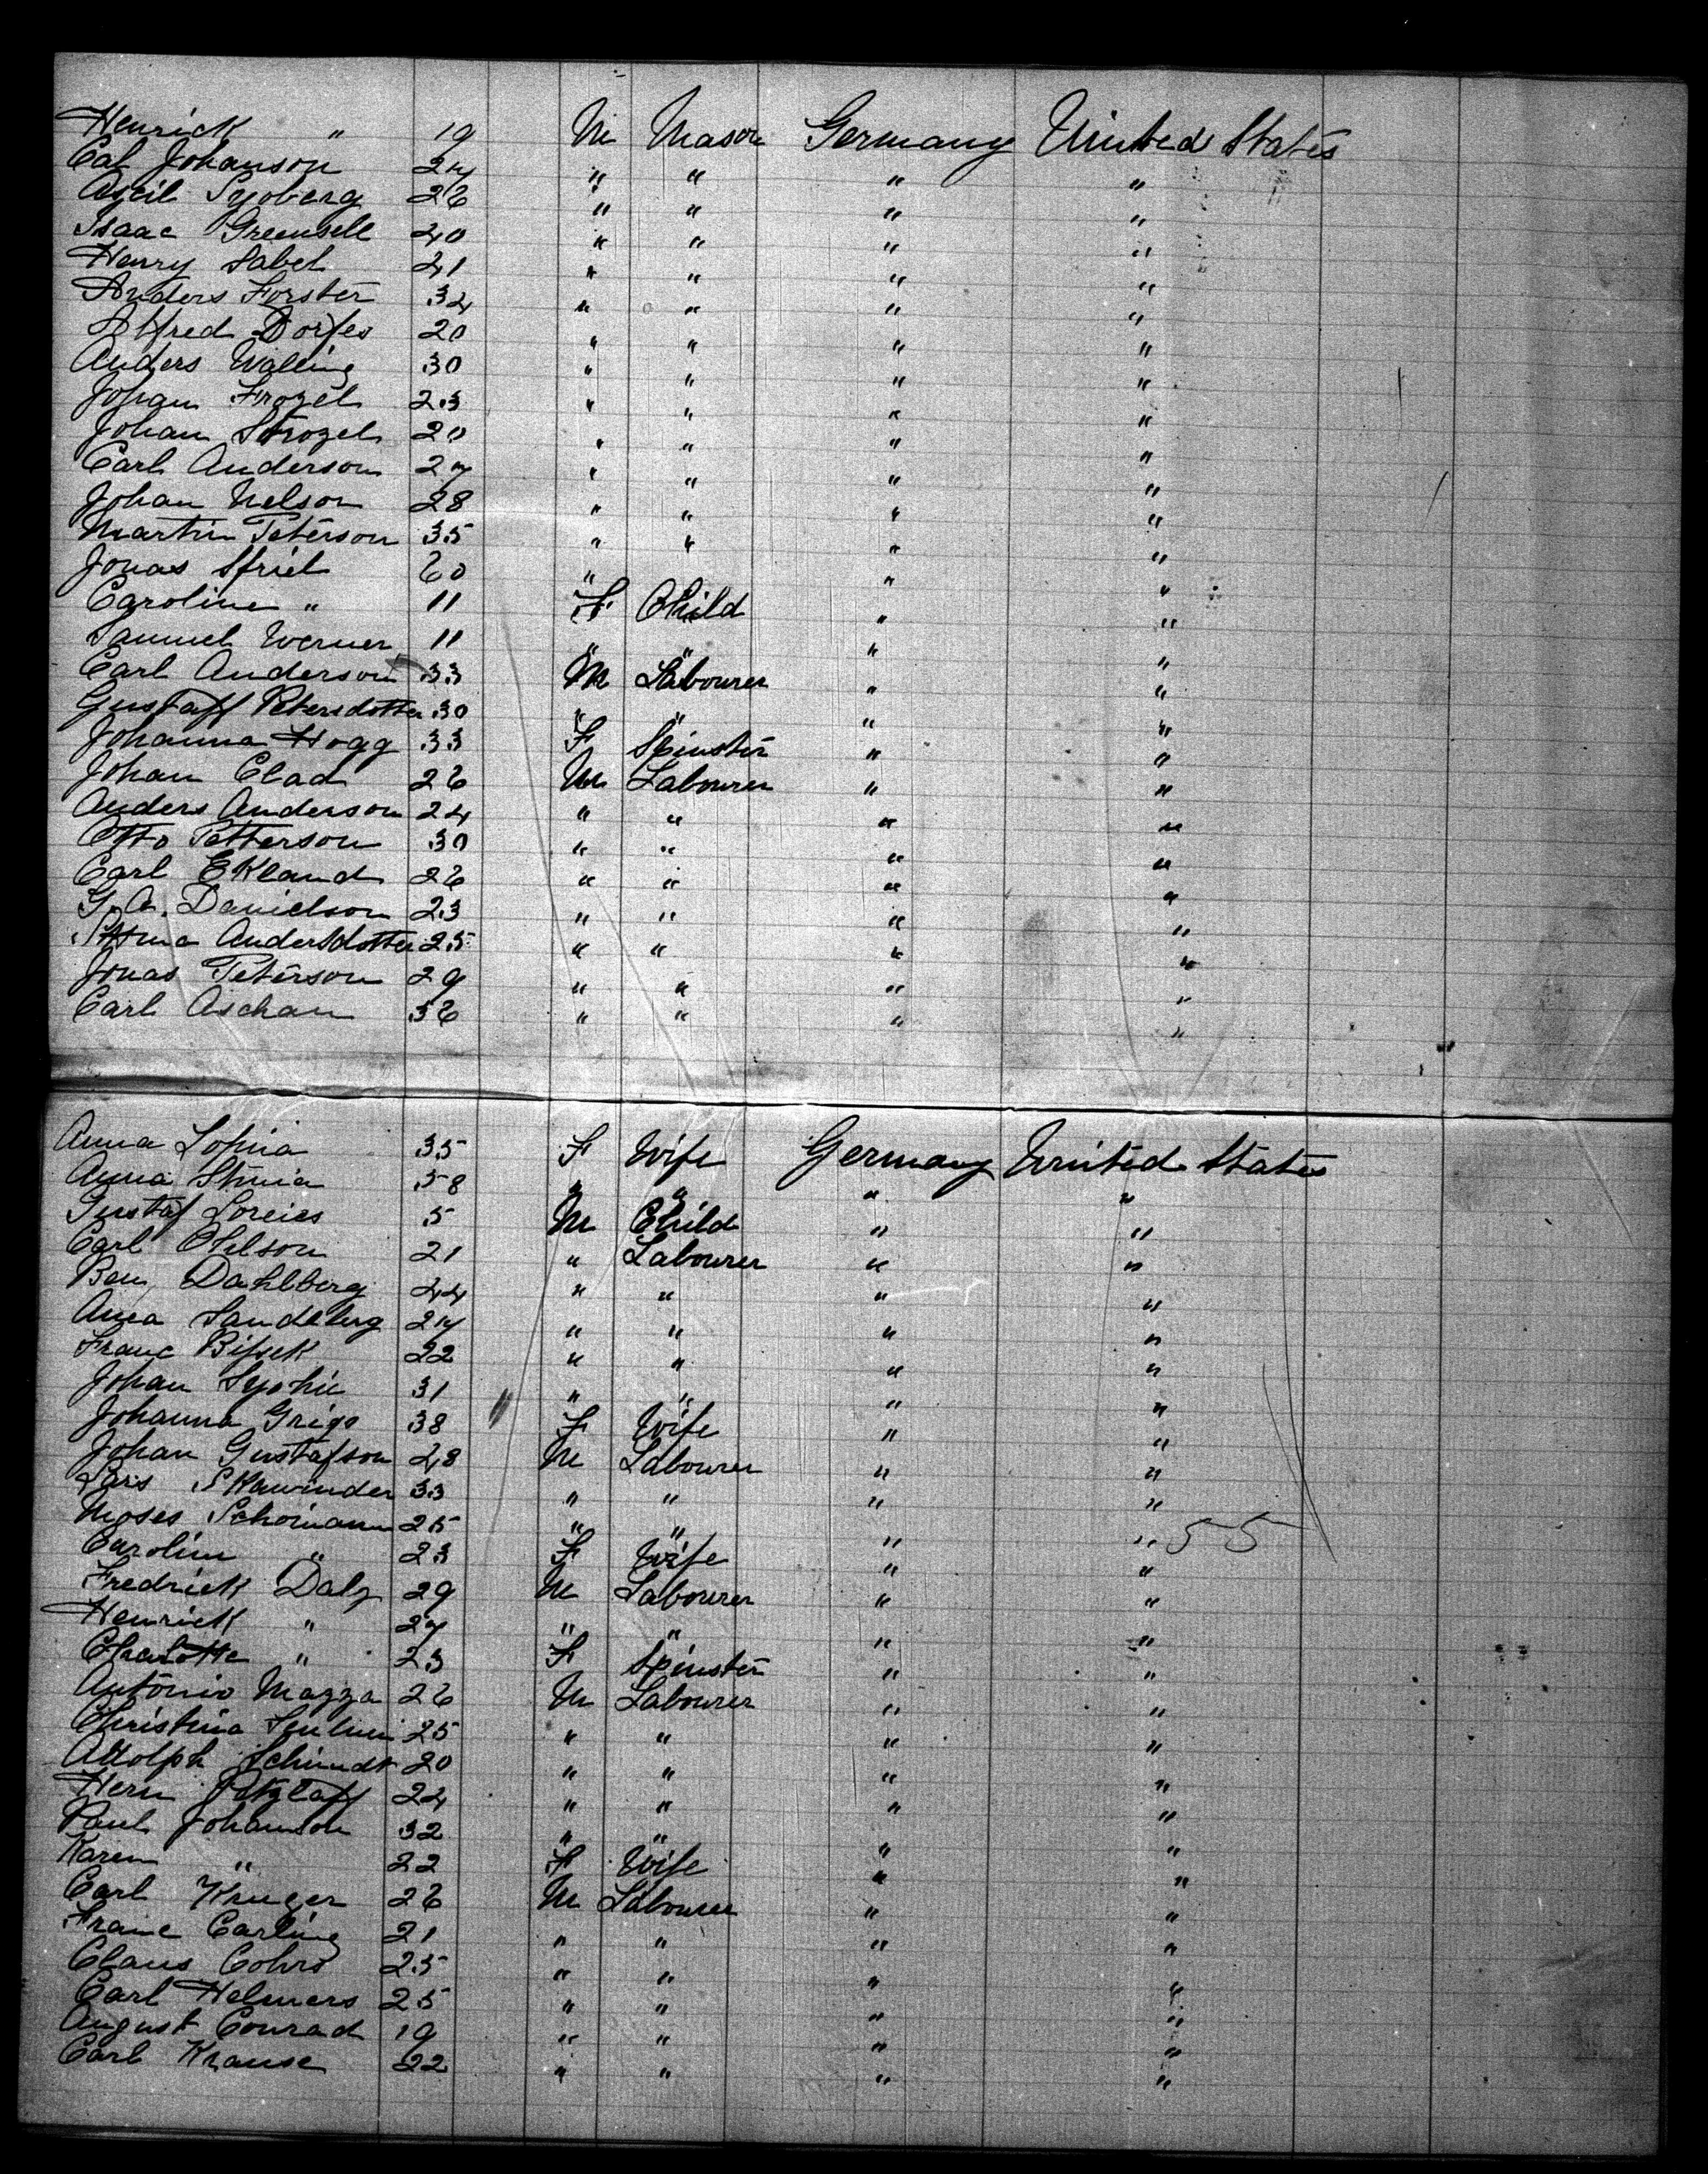 Henrick " 19 M Mason Germany United States
Cal Johanson 24 " " " "
Axcil Syoberg 26 " " " "
Isaac Greensell 40 " " " "
Henry Sabel 21 " " " "
Anders Forster 34 " " " "
Alfred Dorfes 20 " " " "
Anders Walling 30 " " " "
Johan Frozel 23 " " " "
Johan Strozel 20 " " " "
Carl Anderson 27 " " " "
Johan Nelson 28 " " " "
Martin Peterson 35 " " " "
Jonas Sfriel 60 " " "
Caroline " 11 F Child " "
Samuel Werner 11 " " " "
Carl Anderson 33 M Labourer " "
Gustaff Petersdotter 30 " " " "
Johanna Hogg 33 F Spinster " "
Johan Clad 26 M Labourer " "
Anders Anderson 24 " " " "
Otto Petterson 30 " " " "
Carl Ekland 26 " " " "
G. A. Danielson 23 " " " "
Andersdotter 25 " " " "
Jonas Peterson 29 " " " "
Carl Aschan 36 " " " "
Anna Sophia 35 F Wife Germany United States
Anna Stina 58 " " " "
Gustaf Loreies 5 M Child " "
Carl Ohlson 21 " Labourer " "
Ben Dahlberg 44 " " " "
Anna Sandeberg 24 " " " "
Franc 22 " " " "
Johan 31 " " " "
Johanna Grigo 38 F Wife " "
Johan Gustafson 48 M Labourer " "
Lars Skawinder 33 " " " "
Moses Schomann 25 " " " " 55
Carolin " 23 F Wife " "
Fredrick Dalz 29 M Labourer " "
Henrick " 27 " " " "
Charlotte " 23 F Spinster " "
Antonio Mazza 26 M Labourer " "
Christina 25 " " " "
Adolph Schmidt 20 " " " "
Hern Petzlaff 24 " " " "
Paul Johanson 32 " " " "
Karen " 22 F Wife " "
Carl Kruger 26 M Labourer " "
Franc Carling 21 " " " "
Claus Cohrs 25 " " " "
Carl Helmers 25 " " " "
August Conrad 19 " " " "
Carl Krause 22 " " " "